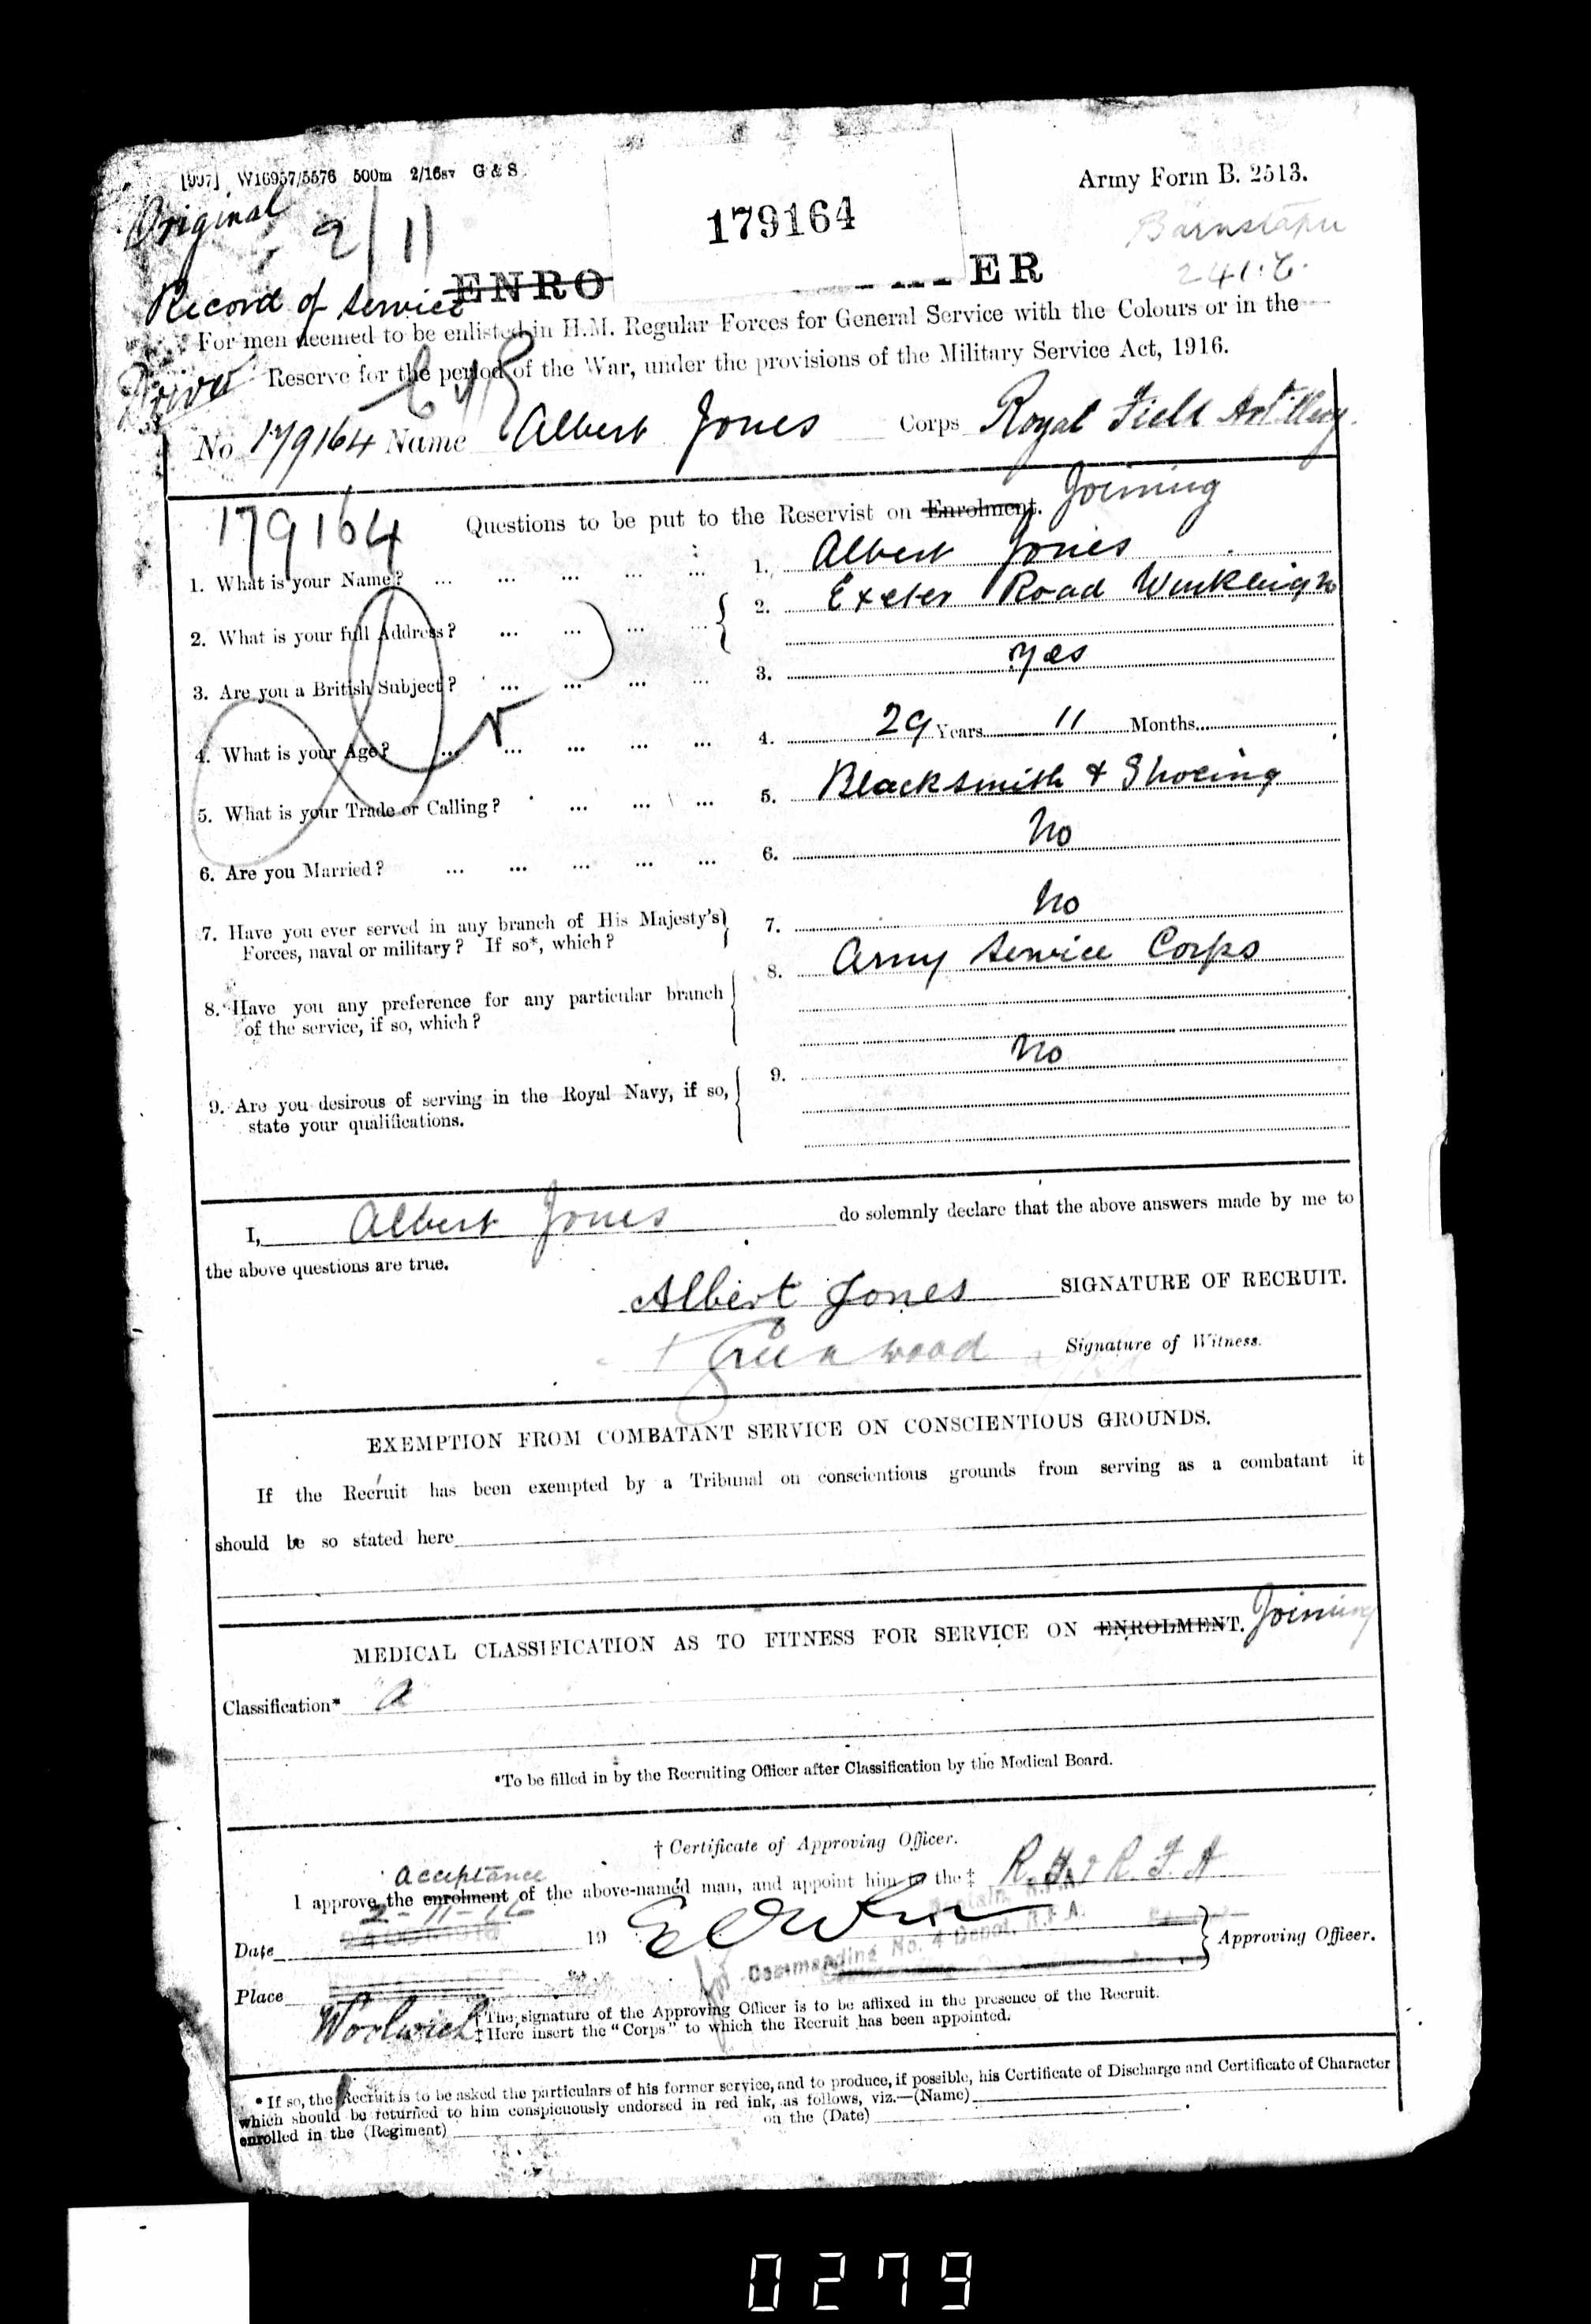 [997] W16957/5576 500m 2/16sv G & S
Army Form B. 2513.
Original
2/11
179164
Barnstaple
ENRO
ER
Record of Service
For men deemed to be enlisted in H.M. Regular Forces for General Service with the Colours or in the
Reserve for the period of the War, under the provisions of the Military Service Act, 1916.
No 179164 Name Albert Jones Corps Royal Field Artillery
179164
Questions to be put to the Reservist on Enrolment. Joining
1. What is your Name? ... ... ... ... ... 1. Albert Jones
2. What is your full Address? ... ... ... ... { 2. Exeter Road Winkleigh
3. Are you a British Subject? ... ... ... ... 3. Yes
4. What is your Age? ... ... ... ... ... 4. 29 Years 11 Months
5. What is your Trade or Calling? ... ... ... 5. Blacksmith & Shoeing
6. Are you Married? ... ... ... ... ... 6. No
7. Have you ever served in any branch of His Majesty's } 7. No
Forces, naval or military? If so*, which?
8. Have you any preference for any particular branch { 8. Army Service Corps
of the service, if so, which?
9. Are you desirous of serving in the Royal Navy, if so, { 9. No
state your qualifications.
I, Albert Jones do solemnly declare that the above answers made by me to
the above questions are true.
Albert Jones SIGNATURE OF RECRUIT.
Greenwood Signature of Witness.
EXEMPTION FROM COMBATANT SERVICE ON CONSCIENTIOUS GROUNDS.
If the Recruit has been exempted by a Tribunal on conscientious grounds from serving as a combatant it
should be so stated here
MEDICAL CLASSIFICATION AS TO FITNESS FOR SERVICE ON ENROLMENT. Joining
Classification* A
*To be filled in by the Recruiting Officer after Classification by the Medical Board.
† Certificate of Approving Officer.
acceptance
I approve the enrolment of the above-named man, and appoint him to the ‡ R.H. & R.F.A
2-11-16
Captain R.F.A.
Date 19
for Commanding No. 4 Depot, R.F.A.
} Approving Officer.
Place
Woolwich
† The signature of the Approving Officer is to be affixed in the presence of the Recruit.
‡ Here insert the "Corps" to which the Recruit has been appointed.
* If so, the Recruit is to be asked the particulars of his former service, and to produce, if possible, his Certificate of Discharge and Certificate of Character
which should be returned to him conspicuously endorsed in red ink, as follows, viz.—(Name)
enrolled in the (Regiment) on the (Date)
0279